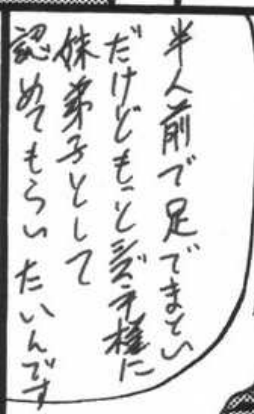 半人前で足でまとい
だけどもっとシズ子様に
妹弟子として
認めてもらいたいんです